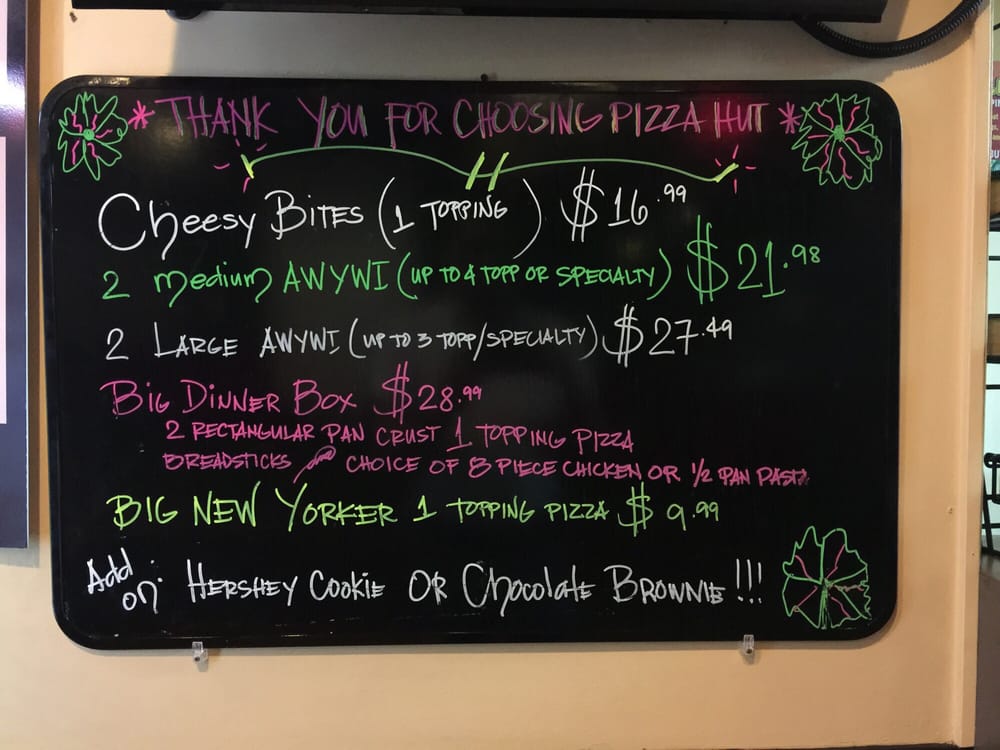 * THANK YOU FOR CHOOSING PIZZA HUT *
Cheesy BITES (1 TOPPING) $16.99
2 medium AWYWI (UP TO 4 TOPP OR SPECIALTY) $21.98
2 LARGE AWYWI (UP TO 3 TOPP/SPECIALTY) $27.49
BIG DINNER BOX $28.99
2 RECTANGULAR PAN CRUST 1 TOPPING PIZZA
BREADSTICKS and CHOICE OF 8 PIECE CHICKEN OR 1/2 PAN PASTA
BIG NEW YORKER 1 TOPPING PIZZA $9.99
Add on: HERSHEY COOKIE OR Chocolate BROWNIE!!!